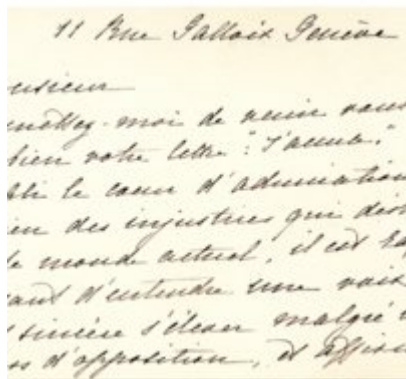 11 Rue Gallois Genève
nsieur
mettez-moi de venir vous
bien votre lettre "J'accuse"
pli le coeur d'admiration
ien des injustices qui dés
le monde actuel, il est
sant d'entendre une voix
sincère s'élever malgré
s d'opposition, et